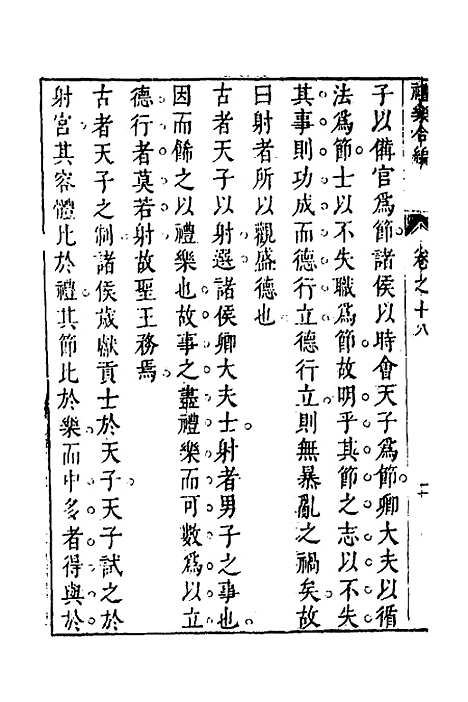 禮樂合編
卷之十八
子以備官為節諸侯以時會天子為節卿大夫以循
法為節士以不失職為節故明乎其節之志以不失
其事則功成而德行立德行立則無暴亂之禍矣故
曰射者所以觀盛德也
古者天子以射選諸侯卿大夫士射者男子之事也
因而飾之以禮樂也故事之盡禮樂而可數為以立
德行者莫若射故聖王務焉
古者天子之制諸侯歲獻貢士於天子天子試之於
射宮其容體比於禮其節比於樂而中多者得與於